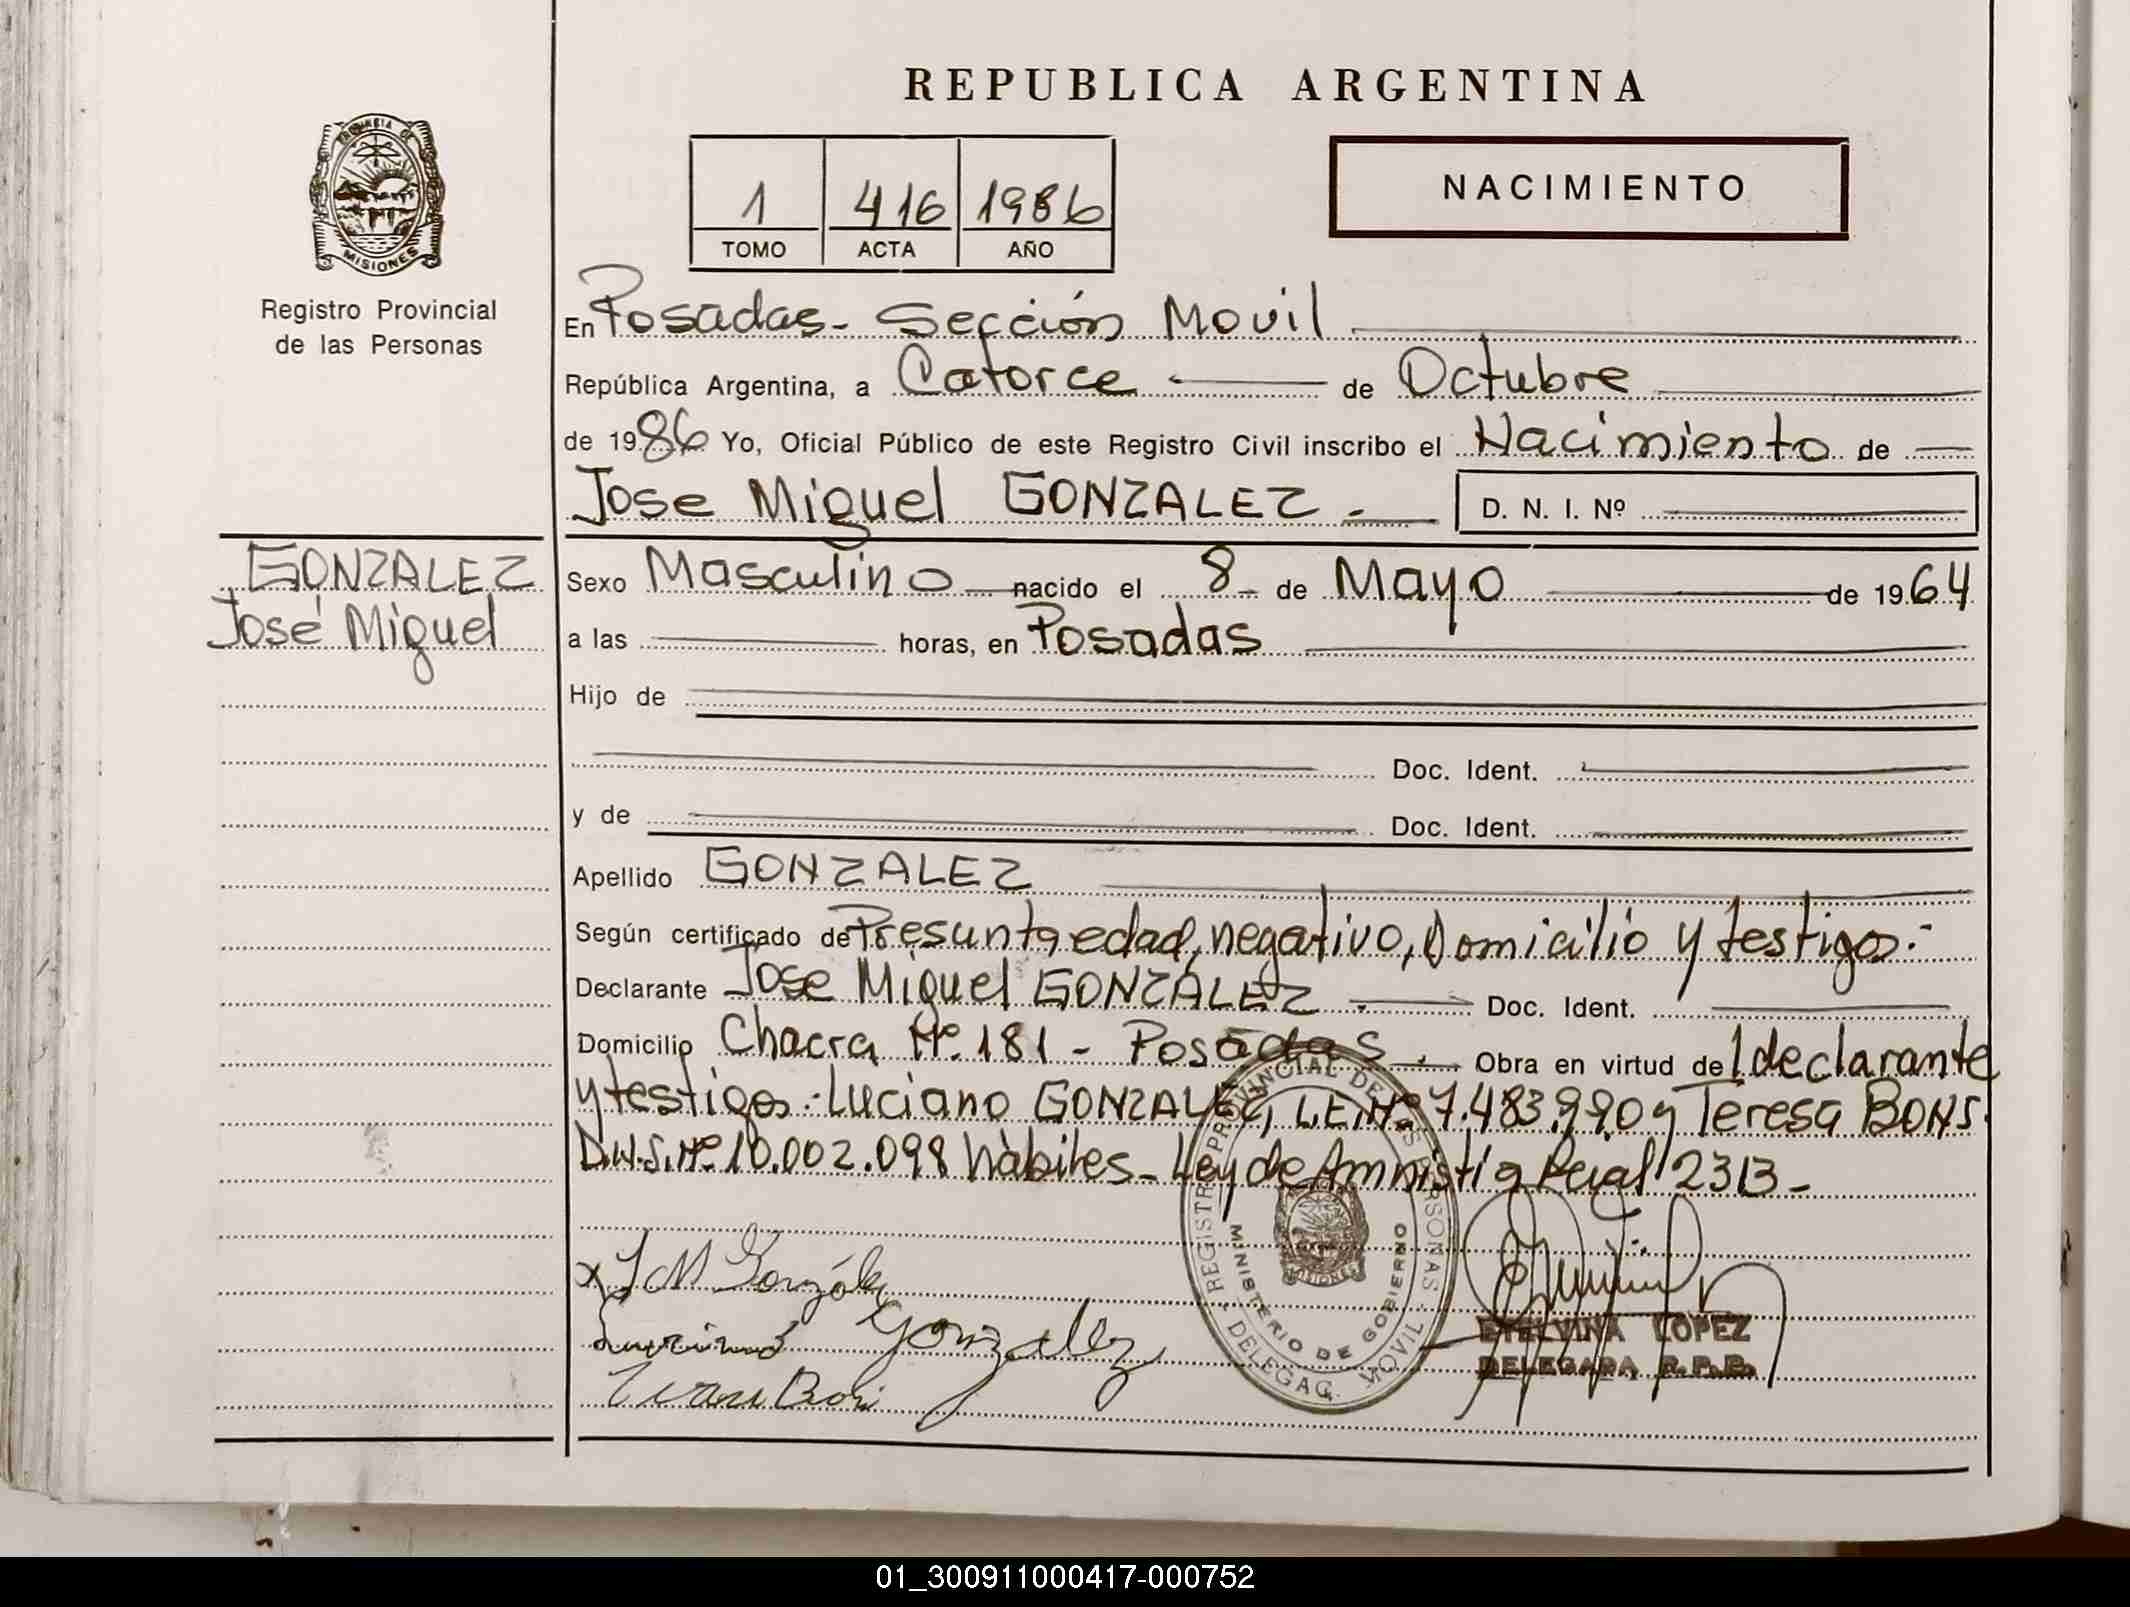 REPUBLICA ARGENTINA
PROVINCIA DE
MISIONES
Registro Provincial
de las Personas
1 416 1986
TOMO ACTA AÑO
NACIMIENTO
En Posadas - Sección Movil
República Argentina, a Catorce de Octubre
de 1986 Yo, Oficial Público de este Registro Civil inscribo el Nacimiento de
Jose Miguel GONZALEZ.
D. N. I. Nº
GONZALEZ
José Miguel
Sexo Masculino nacido el 8 de Mayo de 1964
a las horas, en Posadas
Hijo de
Doc. Ident.
y de Doc. Ident.
Apellido GONZALEZ
Según certificado de Presunta edad, negativo, Domicilio y testigos.-
Declarante Jose Miguel GONZALEZ. Doc. Ident.
Domicilio Chacra Nº 181 - Posadas. Obra en virtud de 1 declarante
y testigos: Luciano GONZALEZ, L.E.Nº 7.483.990 y Teresa BONS.
Nº 10.002.098 hàbiles - Ley de Amnistia 2313 -
REGISTRO PROVINCIAL DE LAS PERSONAS
MINISTERIO DE GOBIERNO
DELEGAC. MOVIL
MISIONES
x J M González
Luciano Gonzalez
ETELVINA LOPEZ
DELEGADA R.P.P.
01_300911000417-000752